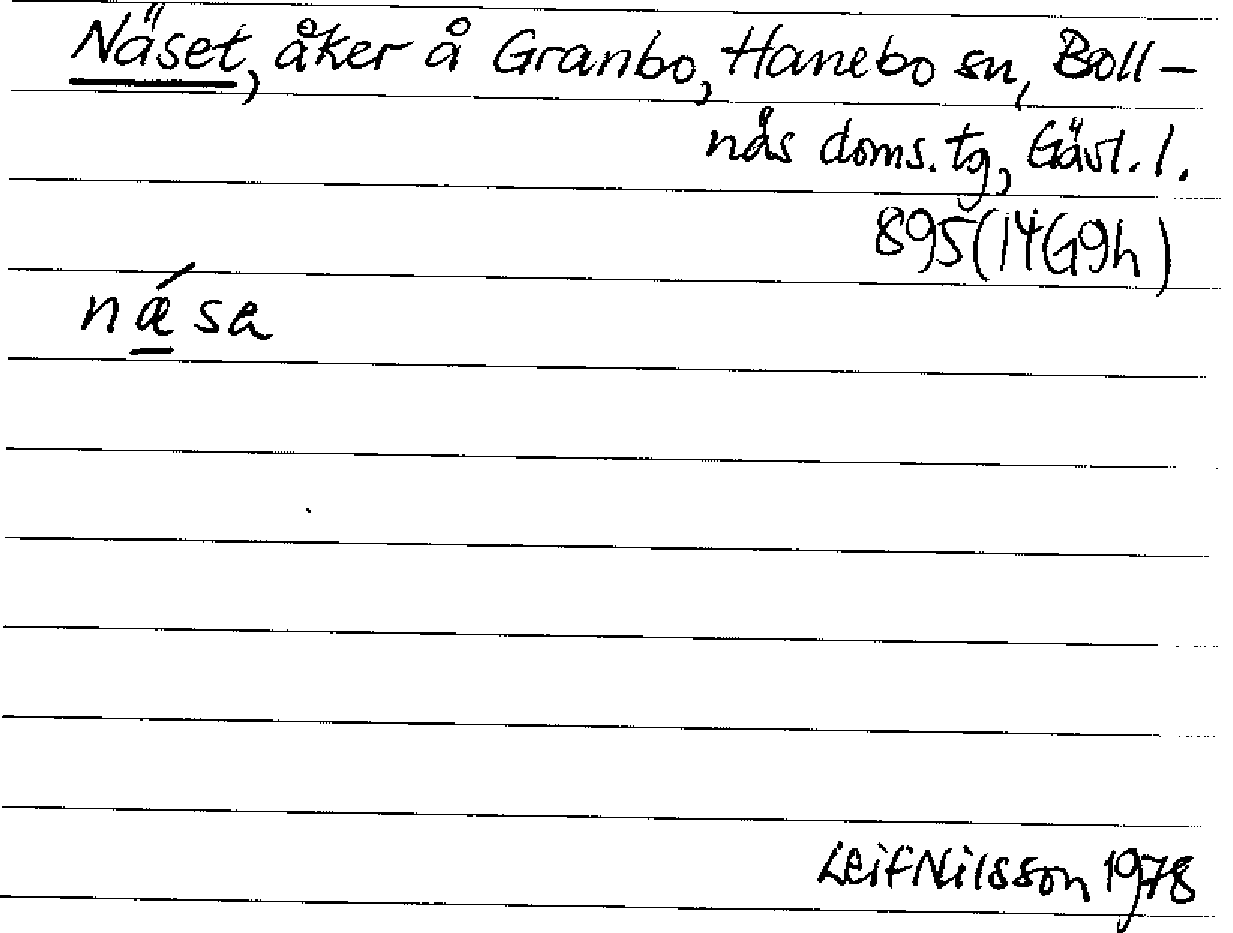 Näset, åker å Granbo, Hanebo sn, Boll-
näs doms.tg, Gävl.l.
895(14G9h)
nǽsa
Leif Nilsson 1978